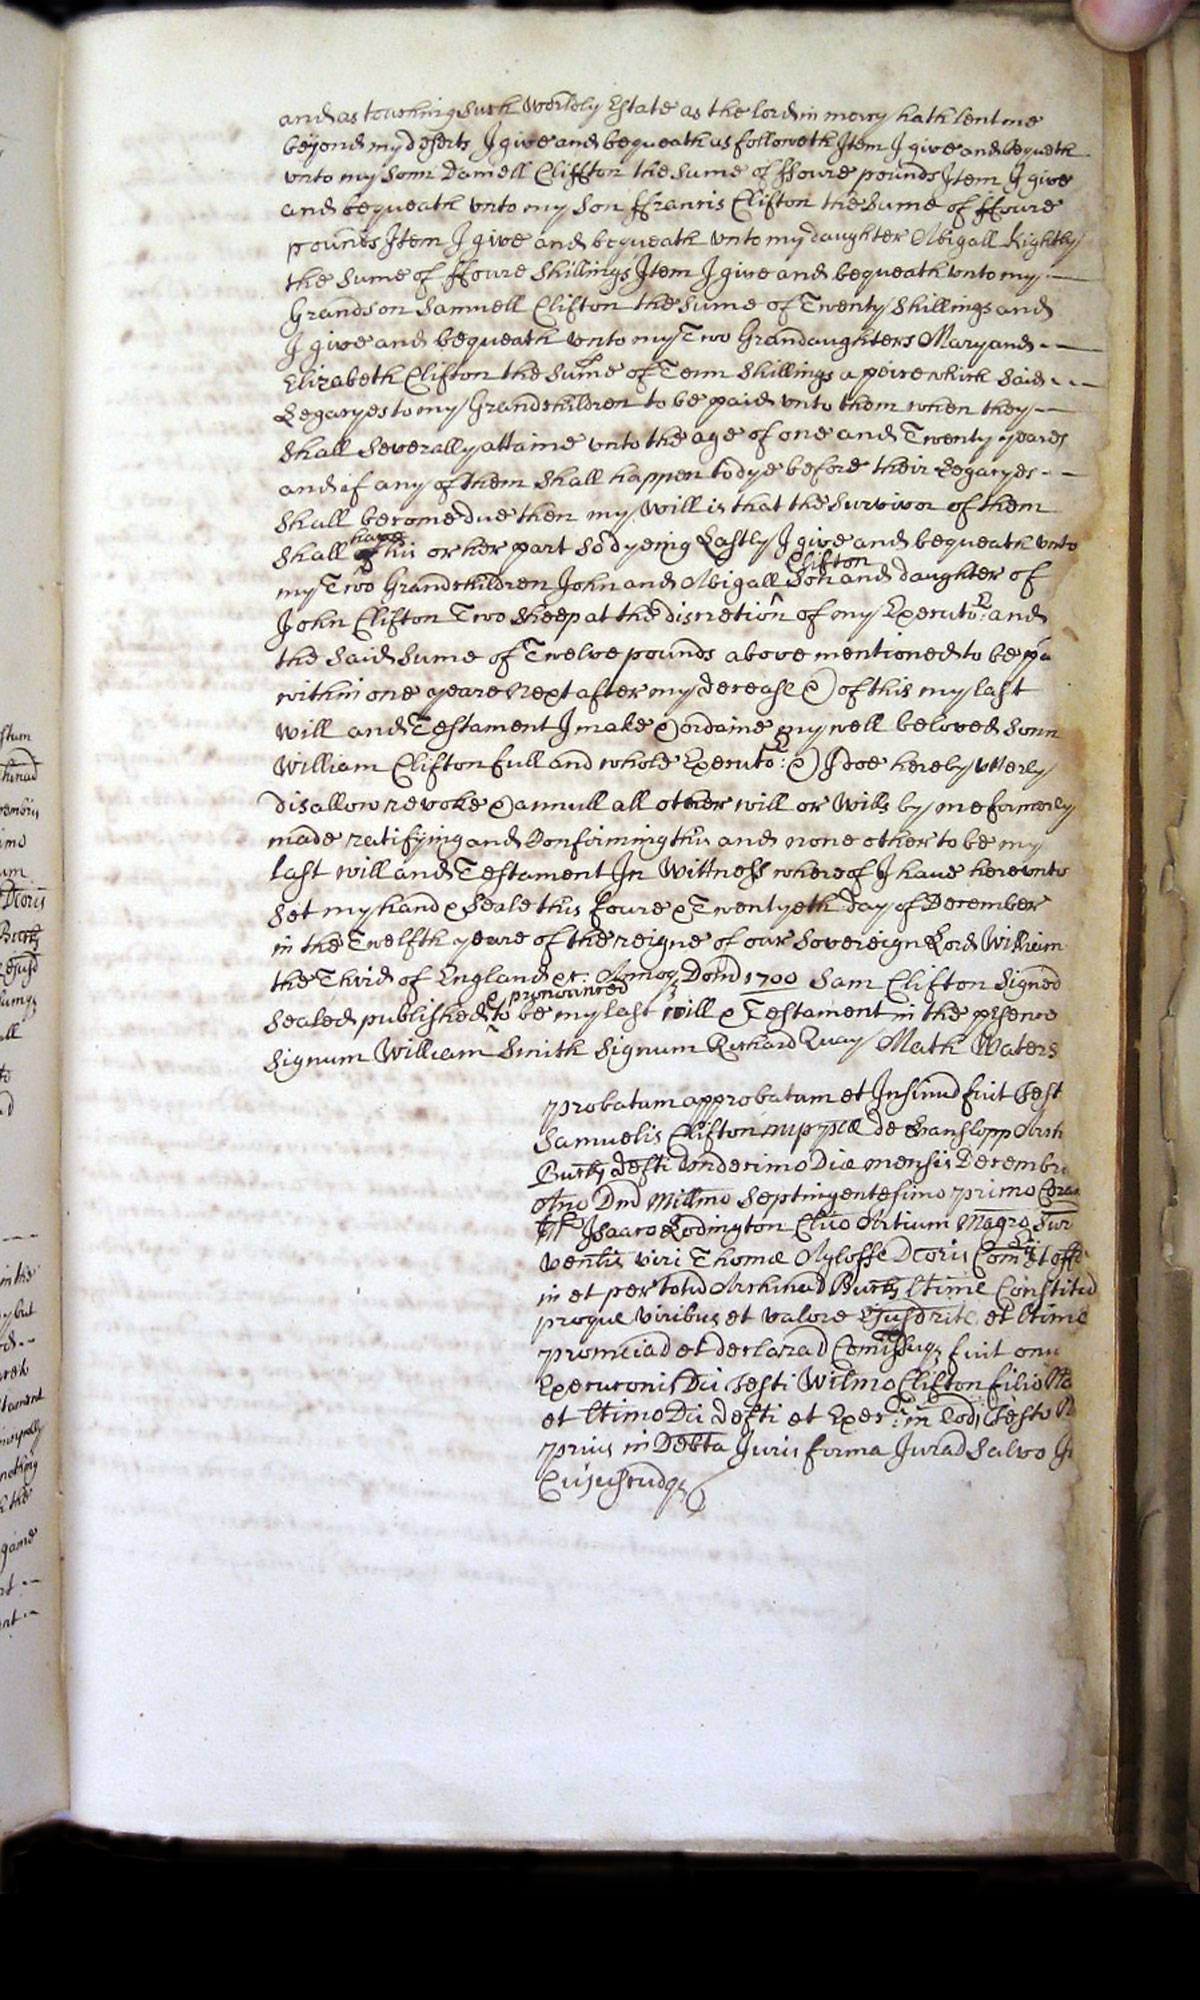 and as touching such Worldly Estate as the lord in mercy hath lent me
beyond my deserts I give and bequeath as followeth Item I give and bequeth
unto my sonn Daniell Cliffton the sume of ffoure pounds Item I give
and bequeath unto my son ffrancis Clifton the sume of ffoure
pounds Item I give and bequeath unto my daughter Abigall Rightly
the sume of ffoure shillings Item I give and bequeath unto my
Grandson Samuell Clifton the sume of Twenty shillings and
I give and bequeath unto my Two Grandaughters Mary and
Elizabeth Clifton the sume of Tenn shillings a peice which said
Legacyes to my Grandchildren to be paid unto them when they
shall severally attaine unto the age of one and Twenty yeares
and if any of them shall happen to dye before their Legacyes
shall become due then my will is that the survivor of them
shall have his or her part so dyeing Lastly I give and bequeath unto
my Two Grandchildren John and Abigall Clifton son and daughter of
John Clifton Two sheep at the discretion of my Executor: and
the said sume of Twelve pounds above mentioned to be pa
within one yeare next after my decease & of this my last
will and Testament I make & ordaine my well beloved sonn
William Clifton full and whole Executor: & I doe hereby utterly
disallow revoke & annull all other will or wills by me formerly
made ratifying and Confirming this and none other to be my
last will and Testament In Wittness whereof I have hereunto
set my hand & seale this foure & Twentyeth day of December
in the Twelfth yeare of the reigne of our Sovereign Lord William
the Third of England &c: Annoq Dom 1700 Sam Clifton Signed
sealed published & pronounced to be my last will & Testament in the psence
Signum William Smith Signum Richard Quay Math Waters
Probatum approbatum et Insinud fuit Test
Samuelis Clifton nup pcae de Hanslopp Arch
Bucks defti undecimo Die mensis Decembr
Ano Dni Millmo Septingentesimo primo Cora
Isaaco Lodington Clico Artium Magro Sur
venlis viri Thomae Ayloffe Dcoris Com et offi
in et per totu Archinad Bucks ltime Constitud
proque viribus et valore ejusd rite et ltime
pronuciad et declarad Comissaq fuit onu
Executonis Dci Testi Wilmo Clifton filio
et ltimo Dci defti et Exer: in Eod Testo
prius in Debta Juris forma Jurad Salvo
Cujuscunq